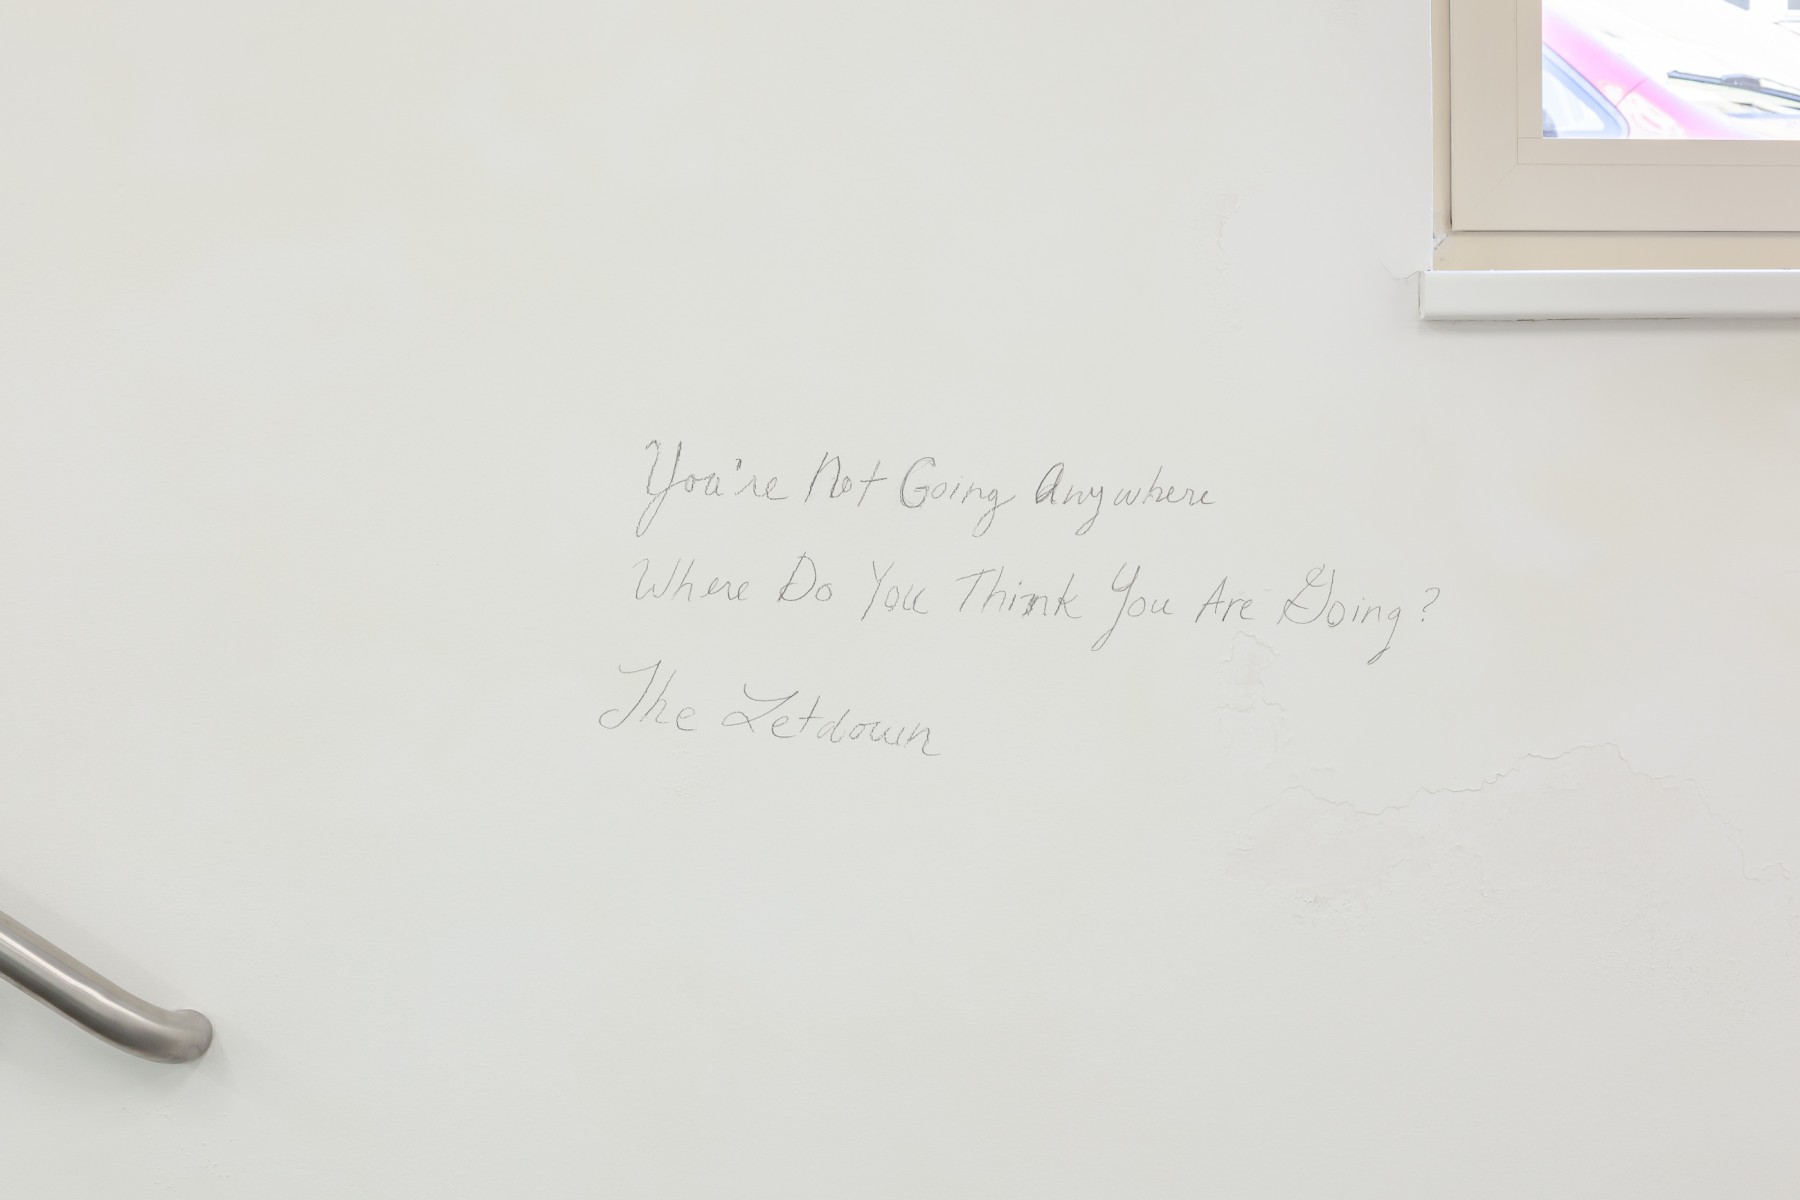 You're Not Going Anywhere
Where Do You Think You Are Going?
The Letdown